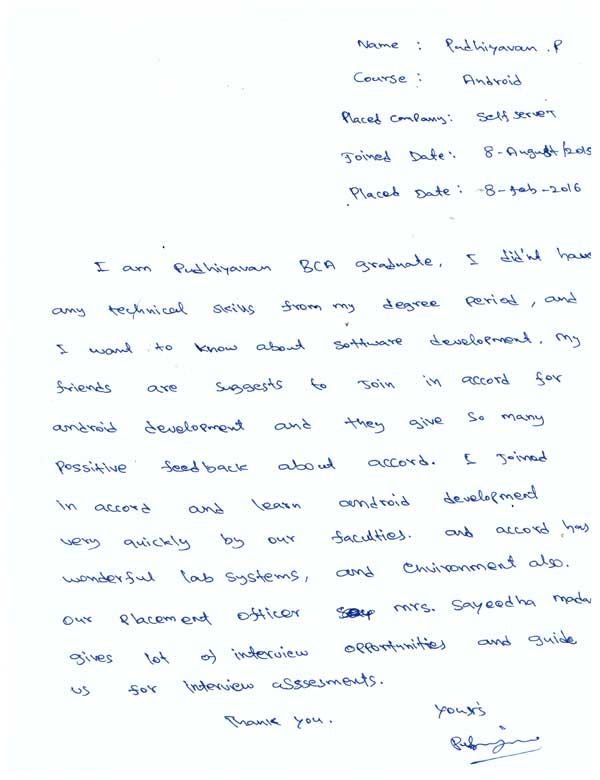 Name : Pudhiyavan .P
Course : Android
Placed Company: Self server
Joined Date: 8-August/2015
Placed Date: -8-feb-2016
I am Pudhiyavan BCA graduate, I did'nt have
any technical skills from my degree period, and
I want to know about software development. My
friends are suggests to Join in accord for
android development and they give so many
Possitive feedback about accord. I Joined
in accord and learn android development
very quickly by our faculties. and accord has
wonderful lab systems, and environment also.
our Placement officer mrs. Sayeedha mada
gives lot of interview opportunities and guide
us for Interview asssesments.
Thank you.
Yours's